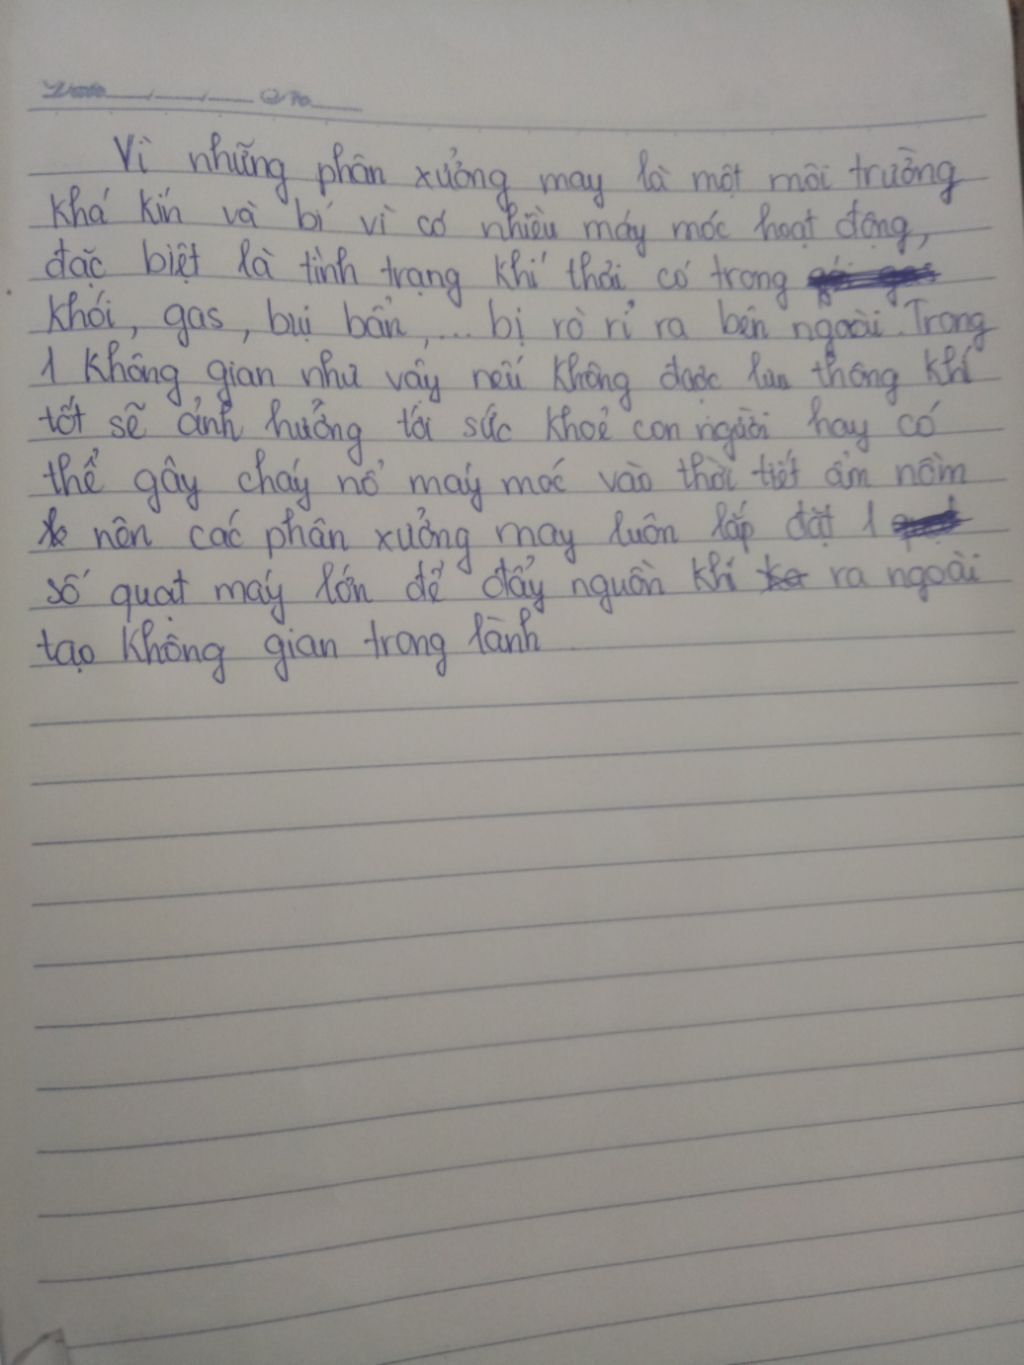 Vì những phân xưởng may là một môi trường
khá kín và bí vì có nhiều máy móc hoạt động,
đặc biệt là tình trạng khí thải có trong
khói, gas, bụi bẩn,... bị rò rỉ ra bên ngoài. Trong
1 không gian như vậy nếu không được lưu thông khí
tốt sẽ ảnh hưởng tới sức khoẻ con người hay có
thể gây cháy nổ máy móc vào thời tiết ẩm nồm
nên các phân xưởng may luôn lắp đặt 1
số quạt máy lớn để đẩy nguồn khí ra ngoài
tạo không gian trong lành